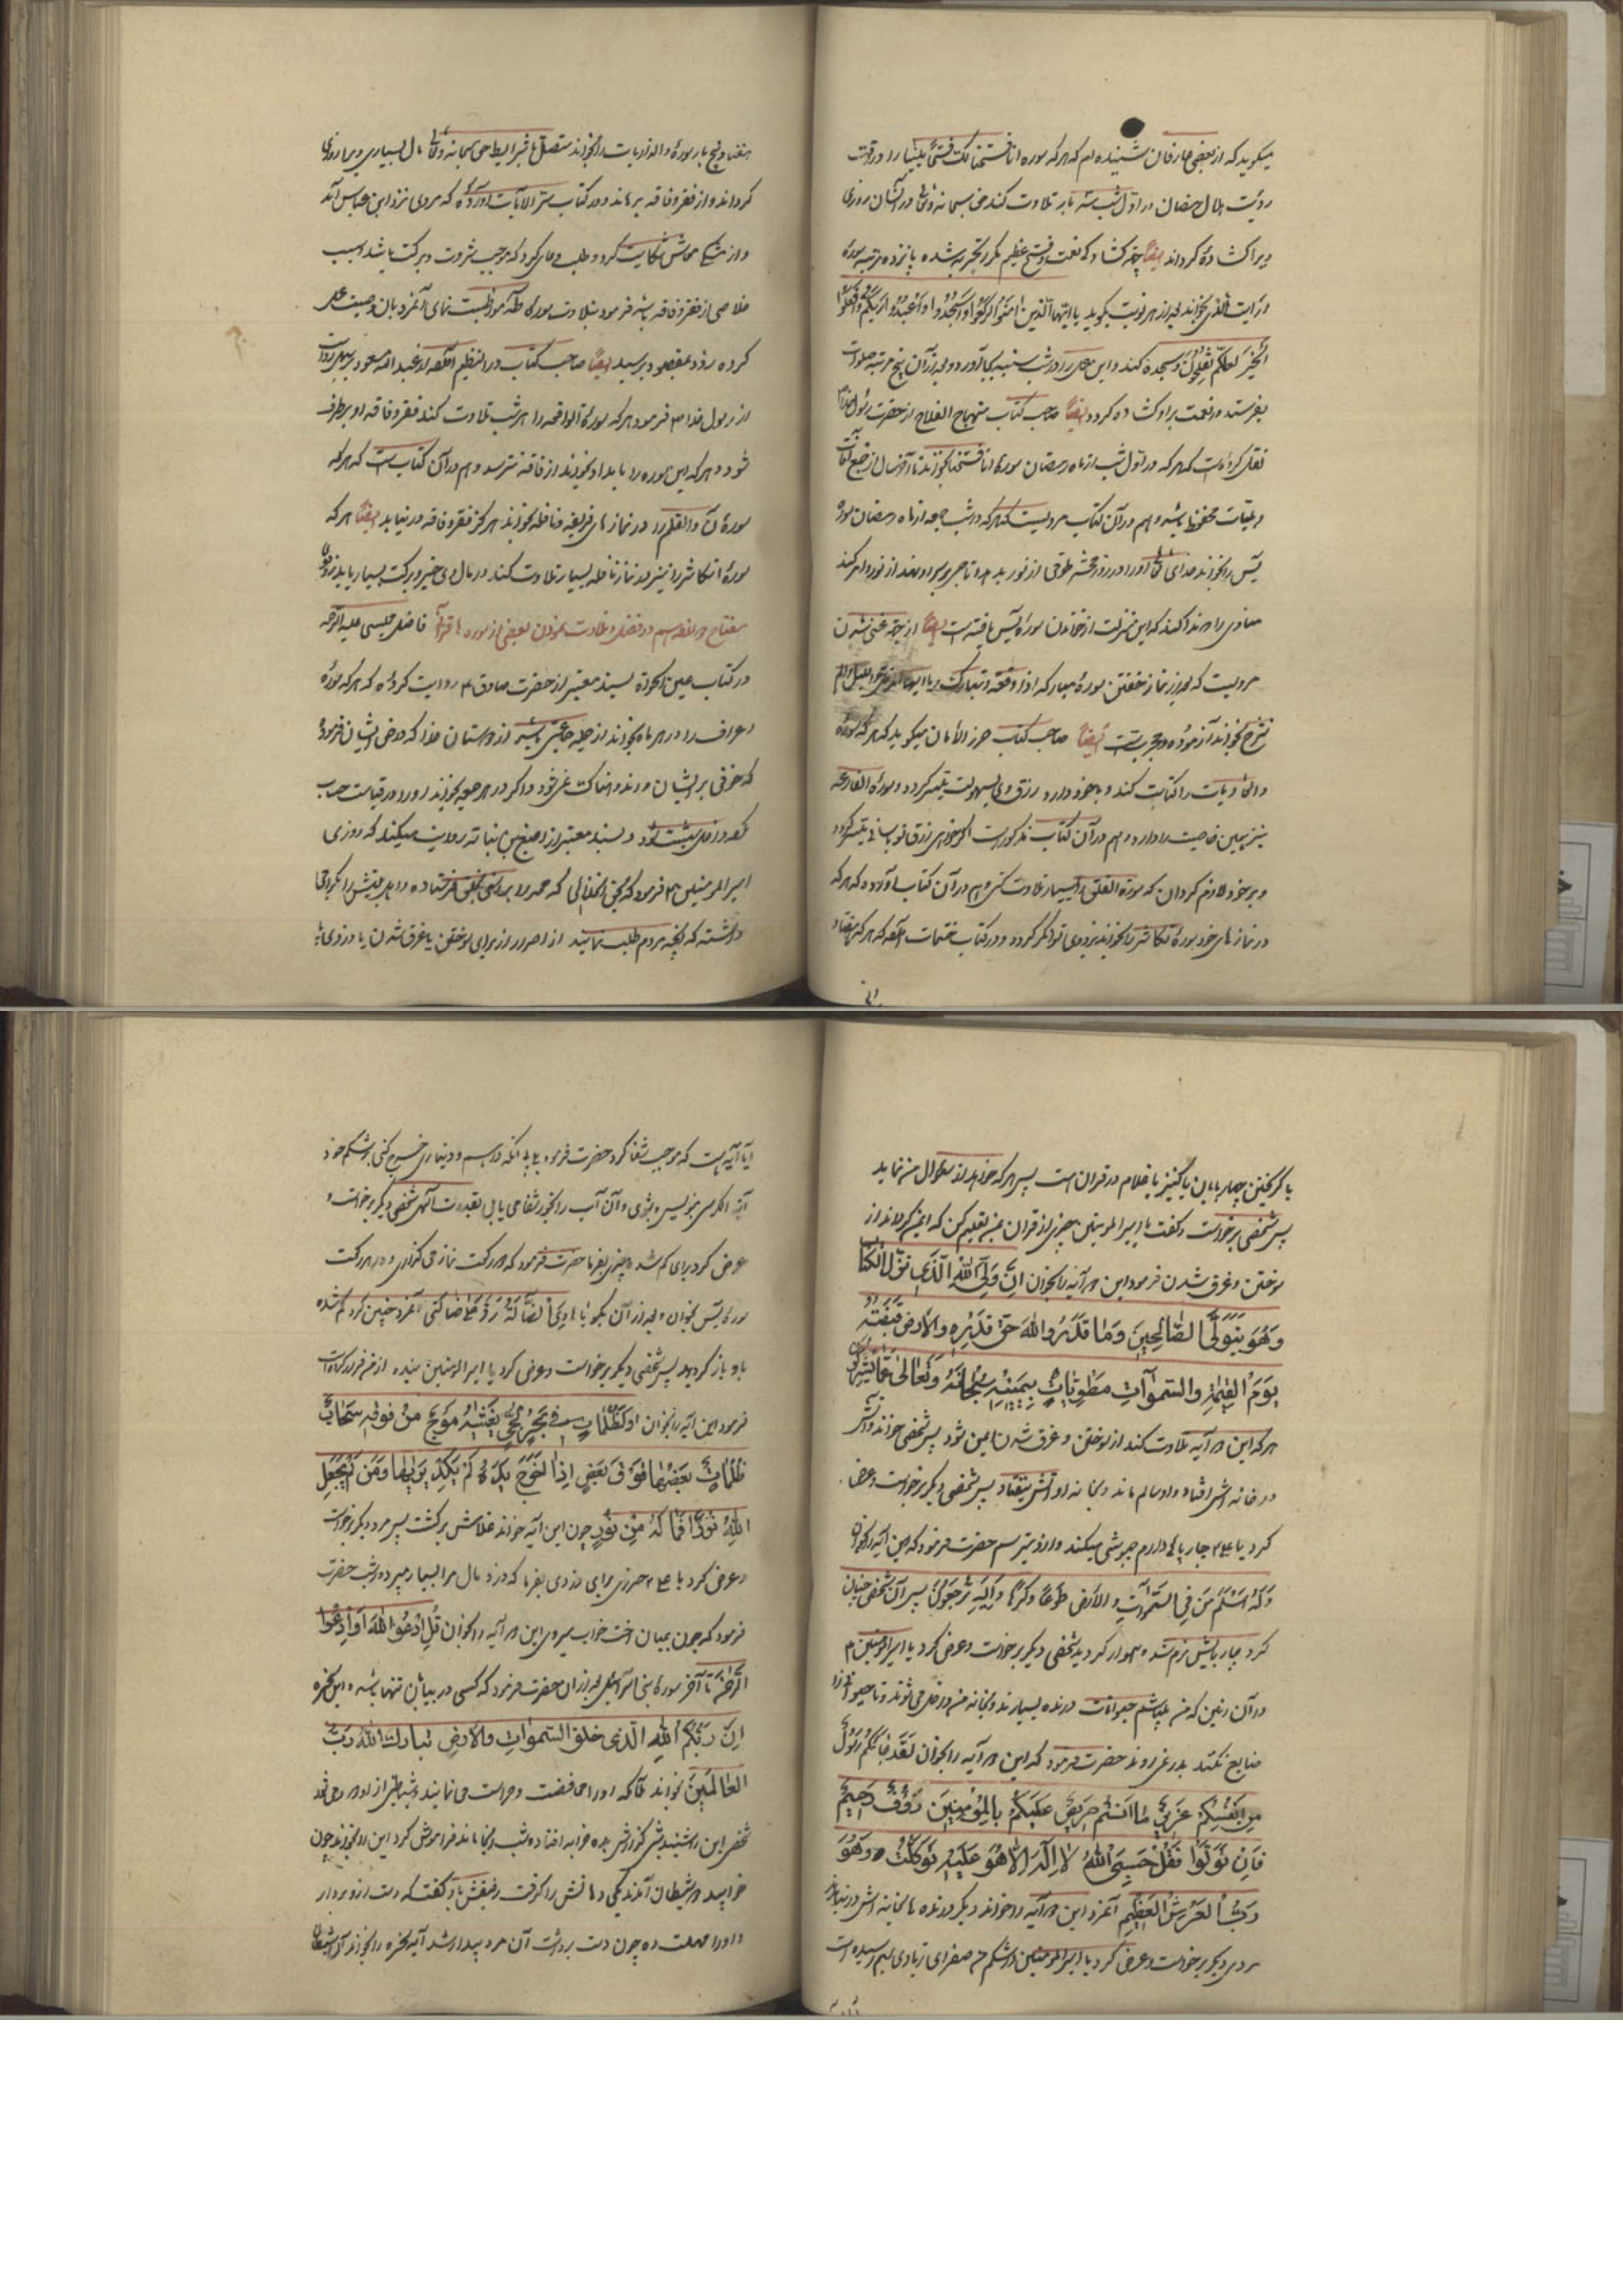 میگوید که از بعضی عارفان شنیده ام که هر که سوره انا فتحنا لک فتحا مبینا را در وقت
رؤیت هلال رمضان در اول شب سه بار تلاوت کند حق سبحانه وتعالی در آنسال روزی
ویرا کشاده گرداند ایضا جهة کشاد کی نعمت و فتح عظیم مکرر تجربه شده پانزده مرتبه سوره
و آیت بخواند بعد از هر نوبت بگوید یا ایها الذین امنوا ارکعوا واسجدوا واعبدوا ربکم وافعلوا
الخیر لعلکم تفلحون و سجده کند و این عمل را در شب شنبه بجا آورد و بعد از آن پنج مرتبه صلوات
بفرستد در نعمت بر او کشاده گردد ایضا صاحب کتاب منهاج الفلاح از حضرت رسول خدا
نقل کرده است که هر که در اول شب از ماه رمضان سوره انا فتحنا بخواند تا آخر سال از جمیع آفات
و بلیات محفوظ باشد و هم در آن کتاب مرویست که هر که در شب جمعه از ماه رمضان سوره
یس را بخواند خدای تعالی او را در روز محشر طوقی از نور بدهد و تاجی بر سر او نهد از نور و امر کند
منادی را که ندا کند که این منزلت از خواندن سوره یس یافته است ایضا از جهة غنی شدن
مرویست که بعد از نماز خفتن سوره مبارکه اذا وقعة و تبارک و یا ایها المزمل و اللیل و الم
نشرح بخواند آزموده و مجربست ایضا صاحب کتاب حرز الامان میگوید که هر که سوره
والذاریات را کتابت کند و با خود دارد رزق وی بسهولت میسر گردد و سوره القارعه
نیز همین خاصیت را دارد و هم در آن کتاب مذکور است اگر خواهی رزق تو بآسانی میسر گردد
و بر خود لازم گردان که سورة الفلق را بسیار تلاوت کنی و هم در آن کتاب آورده که هر که
در نماز های خود سوره تکاثر را بخواند بزودی توانگر گردد و در کتاب ختمات آمده که هر که هفتاد
هفتاد و پنج بار سوره والذاریات را بخواند متصل با شرایط حق سبحانه و تعالی مال بسیاری ویرا روزی
گرداند و از فقر و فاقه برهاند و در کتاب سر الایات آورده که مردی نزد ابن عباس آمد
و از تنگی معاش شکایت کرد و طلب دعای کرد که موجب ثروت و برکت باشد و سبب
خلاصی از فقر و فاقه باشد فرمود بتلاوت سوره طه مواظبت نمای آنمرد بآن وصیت عمل
کرده زود بمقصود برسید ایضا صاحب کتاب در النظیم از عبد الله مسعود روایت
از رسول خدا ص فرمود هر که سورة الواقعه را هر شب تلاوت کند فقر و فاقه او بر طرف
شود و هر که این سوره را بامداد بخواند از فاقه نترسد و هم در آن کتابست که هر که
سورة ن والقلم را در نماز های فریضه و نافله بخواند هرگز فقر و فاقه در نیابد ایضا هر که
سورة التکاثر را نیز در نماز نافله بسیار تلاوت کند در مال وی خیر و برکت بسیار پدید
مفتاح در فضل و تلاوت نمودن بعضی از سوره ها فاضل مجلسی علیه الرحمه
در کتاب عین الحیوة بسند معتبر از حضرت صادق ع روایت کرده که هر که سوره
اعراف را در هر ماه بخواند از جمله جماعتی باشد از دوستان خدا که در حق ایشان فرموده
که خوفی بر ایشان و اندوهناک نمی شود و اگر در هر جمعه بخواند او را در قیامت حساب
نکند و داخل بهشت شود و بسند معتبر از اصبغ بن نباته روایت میکند که روزی
امیر المومنین ع فرمود که بحق آنخدائی که محمد را براستی بخلق فرستاده و اهل بیتش را گرامی
داشته که آنچه مردم طلب نمایند از احراز از برای سوختن یا غرق شدن یا دزدی یا
یا گریختن چهار پایان یا کنیز یا غلام در قران است پس هر که خواهد از من سوال نماید
پس شخصی برخواست و گفت یا امیر المومنین چیزی از قران بمن تعلیم کن که ایمن گرداند از
سوختن و غرق شدن فرمود این دو آیه را بخوان ان ولیّ الله الذی نزل الکتاب
وهو یتولی الصالحین وما قدروا الله حق قدره والارض قبضته
یوم القیمة والسموات مطویات بیمینه سبحانه وتعالی عما یشرکون
هر که این دو آیه تلاوت کند از سوختن و غرق شدن ایمن شود پس شخصی خواند و آتش
در خانه اش افتاد و او سالم ماند و بخانه او آتش نیفتاد پس شخصی دیگر برخواست و عرض
کرد یا ع چارپائی دارم چموشی میکند و از او میترسم حضرت فرمود که این آیه را بخوان
وله اسلم من فی السموات والارض طوعا وکرها والیه ترجعون پس آن شخص چنان
کرد چارپایش نرم شد و هموار گردید شخصی دیگر برخواست و عرض کرد یا امیر المومنین ع
در آن زمین که من میباشم حیوانات درنده بسیارند و بخانه من داخل می شوند و تا حیوانی را
ضایع نکنند بدر نمی روند حضرت فرمود که این دو آیه را بخوان لقد جائکم رسول
من انفسکم عزیز علیه ما عنتم حریص علیکم بالمؤمنین رؤف رحیم
فان تولوا فقل حسبی الله لا اله الا هو علیه توکلت وهو
رب العرش العظیم آنمرد این دو آیه را خواند دیگر درنده ها بخانه اش در نیامدند
مردی دیگر برخواست و عرض کرد یا امیر المومنین در شکم من صفرای زیادی بهم رسیده است
آیا آیه هست که موجب شفا گردد حضرت فرمود بلی بی آنکه درهم و دیناری خرج کنی بر شکم خود
آیة الکرسی بنویس و بشوی و آن آب را بخور شفا می یابی بقدرت الهی شخصی دیگر برخواست و
عرض کرد برای گم شده چیزی بفرما حضرت فرمود که دو رکعت نماز می گذاری و در هر رکعت
سوره یس بخوان و بعد از آن بگو یا هادی الضالة رد علی ضالتی آنمرد چنین کرد گم شده
باو باز گردید پس شخصی دیگر برخواست و عرض کرد یا امیر المومنین بنده از من فرار کرده است
فرمود این آیه را بخوان او کظلمات فی بحر لجی یغشیه موج من فوقه سحاب
ظلمات بعضها فوق بعض اذا اخرج یده لم یکد یریها ومن لم یجعل
الله نورا فما له من نور چون این آیه خواند غلامش برگشت پس مرد دیگر برخواست
و عرض کرد یا ع حرزی برای دزدی بفرما که دزد مال مرا بسیار میبرد در شب حضرت
فرمود که چون بمیان رخت خواب میروی این دو آیه را بخوان قل ادعوا الله او ادعوا
الرحمن تا آخر سوره بنی اسرائیل بعد از آن حضرت فرمود که کسی در بیابان تنها باشد و این سخره
ان ربکم الله الذی خلق السموات والارض تبارک الله رب
العالمین بخواند ملائکه او را محافظت و حراست می نمایند و شیاطین از او دور می شوند
شخصی این را شنید شبی گذارش بده خرابه افتاد و شب آنجا ماند فراموش کرد این را بخواند چون
خوابید دو شیطان آمدند یکی دهانش را گرفت رفیقش باو گفت که دست از او بردار
و او را مهلت ده چون دست برداشت آن مرد بیدار شد آیه سخره را بخواند آن شیطان